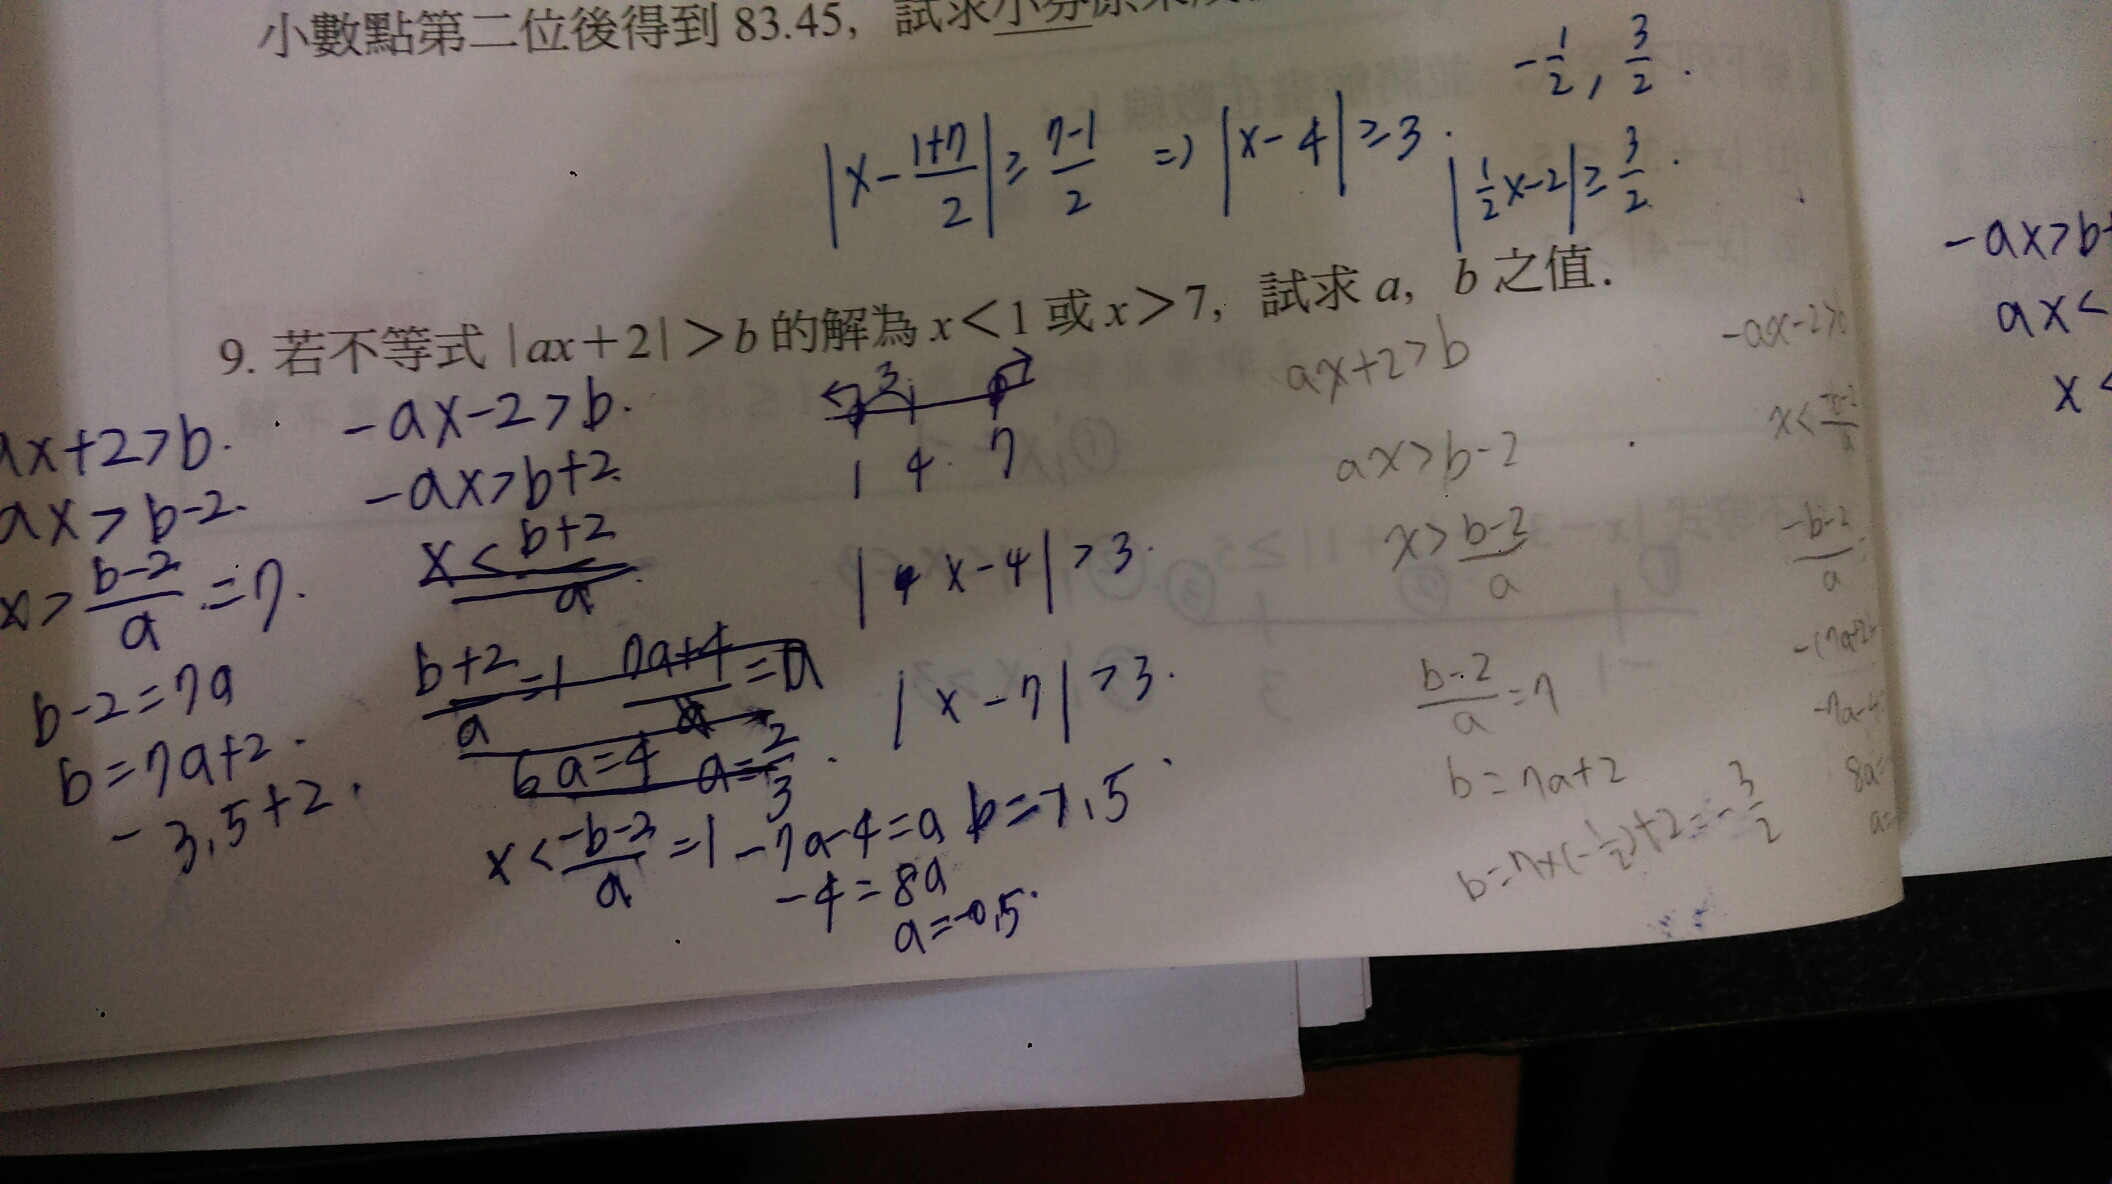 小數點第二位後得到 83.45, 試求小芬原來
-1/2, 3/2.
|x-(1+7)/2|≥(7-1)/2 ⇒ |x-4|≥3.
|1/2x-2|≥3/2.
9. 若不等式 |ax+2|>b 的解為 x<1 或 x>7, 試求 a, b 之值.
ax+2>b.
ax>b-2.
x>(b-2)/a=7.
b-2=7a
b=7a+2.
-3.5+2.
-ax-2>b.
-ax>b+2.
x<(b+2)/a
(b+2)/a=1 (7a+4)/a=a
6a=4 a=2/3
x<(-b-2)/a=1 -7a-4=a b=-1.5
-4=8a
a=-0.5
3
1 4 7
|x-4|>3.
|x-7|>3.
ax+2>b
ax>b-2
x>(b-2)/a
(b-2)/a=7
b=7a+2
b=7×(-1/2)+2=-3/2
-ax-2>
x<(-b-2)/a
(-b-2)/a=
-(7a+2)
-7a-4
8a=
a=
-ax>b+
ax<
x<